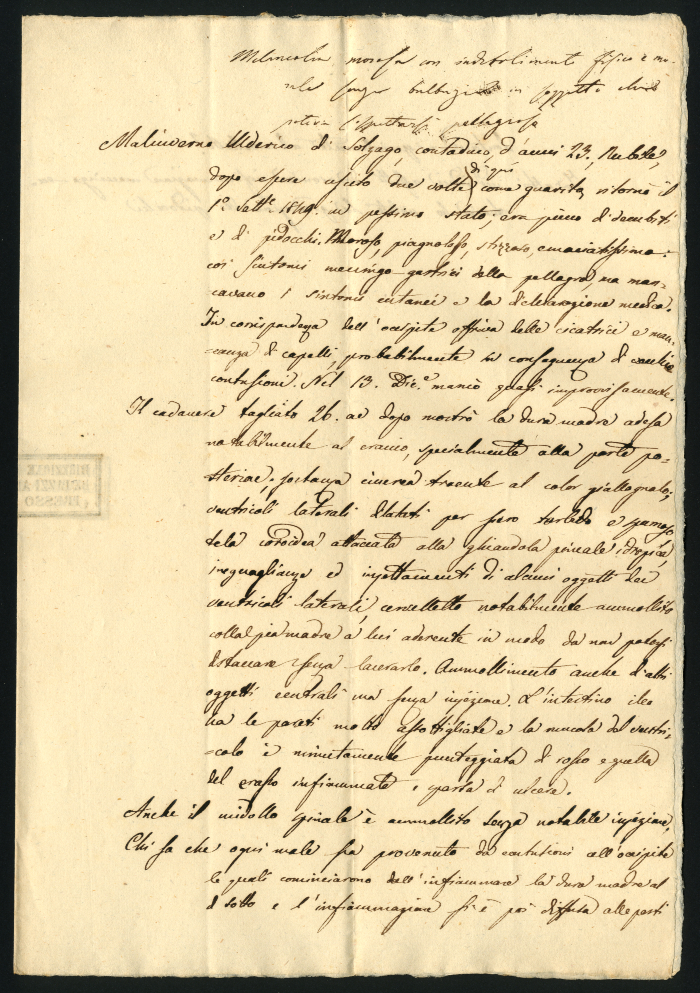 Melancolia morosa con indebolimento fisico e mo-
rale senza balbuzie in soggetto che
poteva sospettarsi pellagroso
Malinverno Ulderico di Solzago, contadino, d'anni 23, Nubile,
dopo essere uscito due volte di qui come guarito, ritornò il
1° Sett.e 1849. in pessimo stato; era pieno di decubiti
e di pidocchi. Moroso, piagnoloso, stizzoso, emaciatissimo:
coi sintomi meningo gastrici della pellagra, ma man-
cavano i sintomi cutanei e la dichiarazione medica.
In corrispondenza dell'occipite offriva delle cicatrici e man-
canza di capelli, probabilmente in conseguenza di
contusioni. Nel 13. Dic.e mancò quasi improvvisamente.
Il cadavere tagliato 26. ore dopo mostrò la dura madre adesa
notabilmente al cranio, specialmente alla parte po-
steriore; sostanza cinerea traente al color giallognolo;
ventricoli laterali dilatati per siero torbido e spumoso,
tela coroidea attaccata alla ghiandola pineale, idropica,
ineguaglianze ed injettamenti di alcuni oggetti dei
ventricoli laterali, cervelletto notabilmente ammollito
colla pia madre a lui aderente in modo da non potersi
distaccare senza lacerarlo. Ammollimento anche d'altri
oggetti centrali ma senza injezione. L'intestino ileo
ha le pareti molto assottigliate e la mucosa del ventri-
colo è minutamente punteggiata di rosso e quella
del crasso infiammata e sparsa di ulcere.
Anche il midollo spinale è ammollito senza notabile injezione.
Chi sa che ogni male sia provenuto da contusioni all'occipite
le quali cominciarono dall'infiammare la dura madre al
di sotto e l'infiammazione si è poi diffusa alle parti